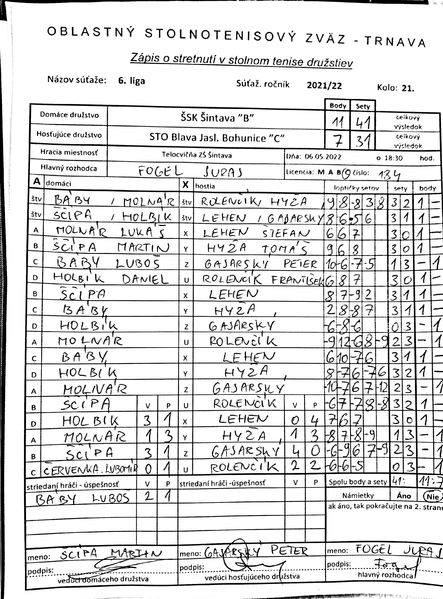 OBLASTNÝ STOLNOTENISOVÝ ZVÄZ - TRNAVA
Zápis o stretnutí v stolnom tenise družstiev
Názov súťaže: 6. liga Súťaž. ročník 2021/22 Kolo: 21.
Body Sety
Domáce družstvo ŠSK Šintava "B" 11 41 celkový výsledok
Hosťujúce družstvo STO Blava Jasl. Bohunice "C" 7 31 celkový výsledok
Hracia miestnosť Telocvičňa ZŠ Šintava Dňa: 06.05.2022 o 18:30 hod.
Hlavný rozhodca FOGEL JURAJ Licencia: M A B C číslo: 134
A domáci X hostia loptičky setov sety body
štv BÁBY, MOLNÁR štv ROLENČÍK, HYŽA 9 8 -8 3 8 3 2 1 -
štv SČÍPA, HOLBÍK štv LEHEN, GAJARSKY 8 -6 5 6 3 1 1 -
A MOLNÁR LUKÁŠ X LEHEN ŠTEFAN 6 6 7 3 0 1 -
B ŠČÍPA MARTIN Y HYŽA TOMÁŠ 9 6 8 3 0 1 -
C BÁBY LUBOŠ Z GAJARSKY PETER -10 -6 7 -5 1 3 - 1
D HOLBÍK DANIEL U ROLENČÍK FRANTIŠEK 6 8 7 3 0 1 -
B ŠČÍPA X LEHEN 8 7 -9 2 3 1 1 -
C BÁBY Y HYŽA 2 8 -8 7 3 1 1 -
D HOLBÍK Z GAJARSKY -6 -8 -6 0 3 - 1
A MOLNÁR U ROLENČÍK -9 12 -6 8 -9 2 3 - 1
C BÁBY X LEHEN 6 10 -7 6 3 1 1 -
D HOLBÍK Y HYŽA 8 -7 6 -7 6 3 2 1 -
A MOLNÁR Z GAJARSKY 2 3 - 1
B SČÍPA V P U ROLENČÍK V P 3 2 1 -
D HOLBÍK 3 1 X LEHEN 0 4 7 6 7 3 0 1 -
A MOLNÁR 1 3 Y HYŽA 1 3 -8 7 -8 -9 1 3 - 1
B ŠČÍPA 3 1 Z GAJARSKY 4 0 -6 -9 6 7 -9 2 3 - 1
C ČERVENKA LUBOMÍR 0 1 U ROLENČÍK 2 2 -6 -6 -5 0 3 - 1
striedaní hráči - úspešnosť V P striedaní hráči - úspešnosť V P Spolu body a sety 41: 11:7
BÁBY LUBOŠ 2 1 Námietky Áno Nie
ak áno, tak pokračujte na 2. strane
meno: SČÍPA MARTIN meno: GAJARSKÝ PETER meno: FOGEL JURAJ
podpis: podpis: podpis:
vedúci domáceho družstva vedúci hosťujúceho družstva hlavný rozhodca